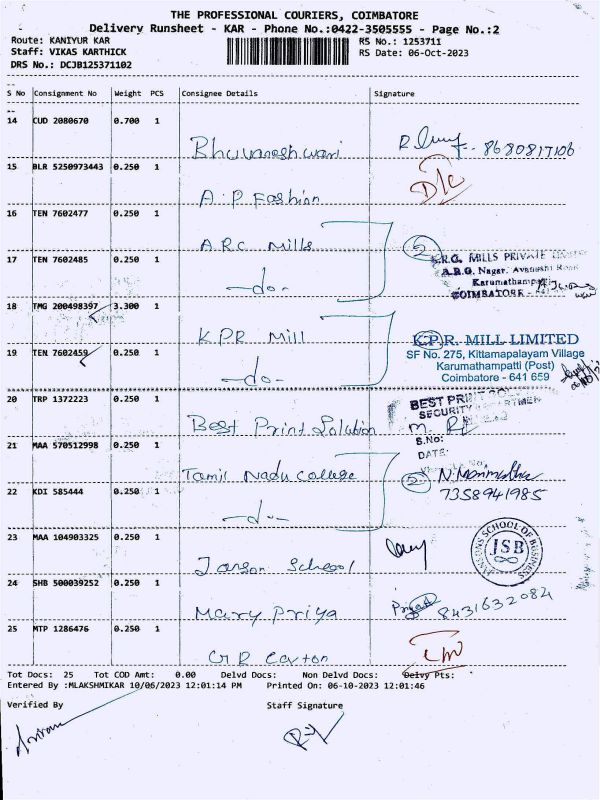 THE PROFESSIONAL COURIERS, COIMBATORE
Delivery Runsheet - KAR - Phone No.:0422-3505555 - Page No.:2
Route: KANIYUR KAR RS No.: 1253711
Staff: VIKAS KARTHICK RS Date: 06-Oct-2023
DRS No.: DCJB125371102
S No Consignment No Weight PCS Consignee Details Signature
14 CUD 2080670 0.700 1
Bhuvaneshwari 8680817106
15 BLR 5250973443 0.250 1
A.P Fashion D/c
16 TEN 7602477 0.250 1
A.R.C Mills 2
17 TEN 7602485 0.250 1
MILLS PRIVATE
A.R.G. Nagar, Avanashi Road
Karumathampatti
COIMBATORE -
-do-
18 TMG 200498397 3.300 1
KPR Mill
K.P.R. MILL LIMITED
SF No. 275, Kittamapalayam Village
Karumathampatti (Post)
Coimbatore - 641 659
19 TEN 7602459 0.250 1
-do-
20 TRP 1372223 0.250 1
Best Print Solution
BEST PRINT
SECURITY
S.No:
DATE:
21 MAA 570512998 0.250 1
Tamil Nadu College 2
22 KDI 585444 0.250 1
-do- 7358941985
23 MAA 104903325 0.250 1
Janson School
JANSONS SCHOOL OF BUSINESS
JSB
24 SHB 500039252 0.250 1
Mary Priya 8431632084
25 MTP 1286476 0.250 1
Tot Docs: 25 Tot COD Amt: 0.00 Delvd Docs: Non Delvd Docs: Delvy Pts:
Entered By :MLAKSHMIKAR 10/06/2023 12:01:14 PM Printed On: 06-10-2023 12:01:46
Verified By Staff Signature